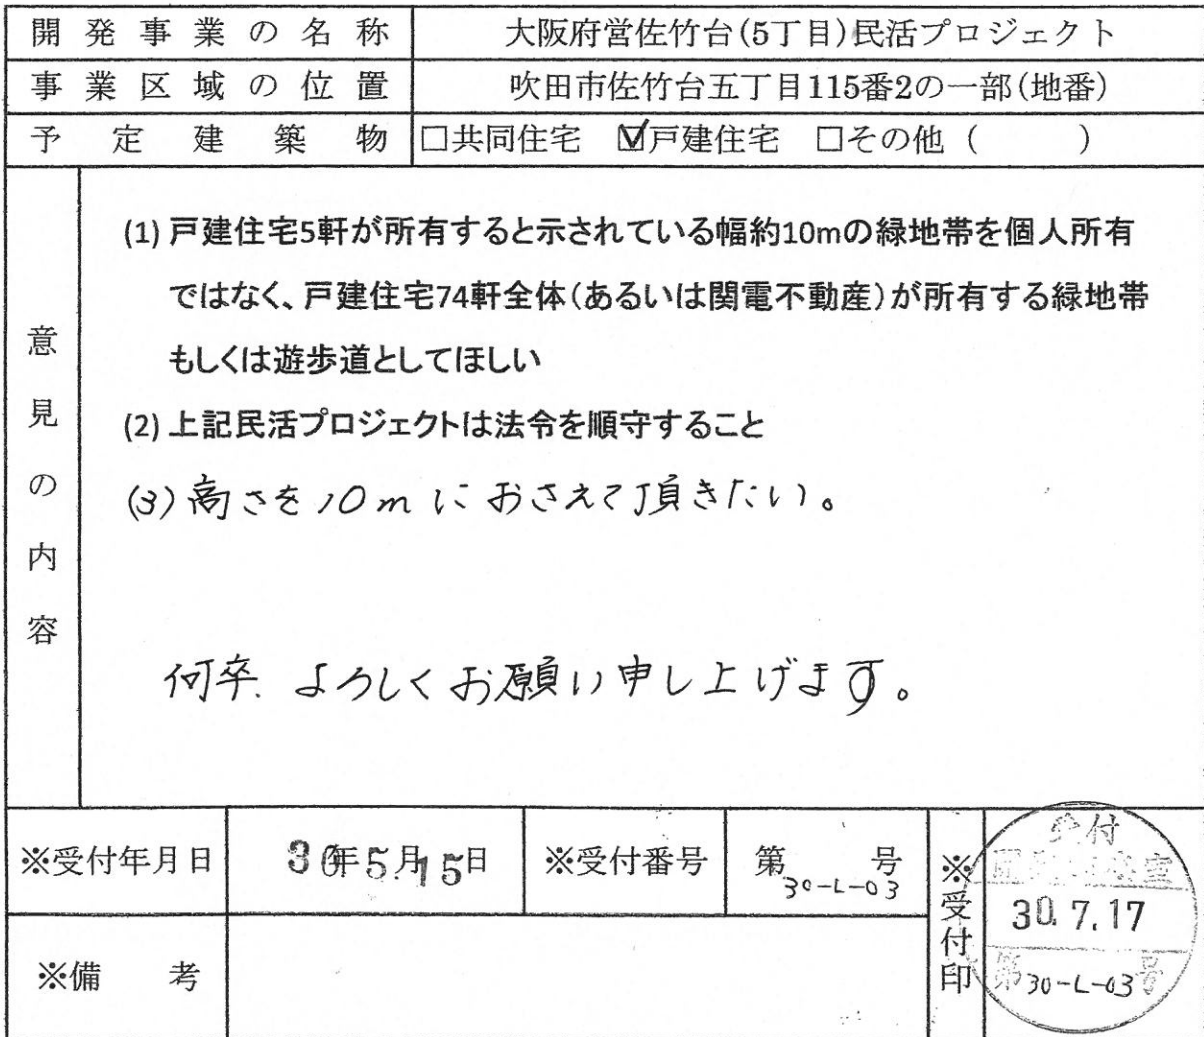 開発事業の名称 大阪府営佐竹台(5丁目)民活プロジェクト
事業区域の位置 吹田市佐竹台五丁目115番2の一部(地番)
予定建築物 □共同住宅 ☑戸建住宅 □その他（　　　）
意見の内容
(1) 戸建住宅5軒が所有すると示されている幅約10mの緑地帯を個人所有
ではなく、戸建住宅74軒全体（あるいは関電不動産）が所有する緑地帯
もしくは遊歩道としてほしい
(2) 上記民活プロジェクトは法令を順守すること
(3) 高さを10mにおさえて頂きたい。
何卒、よろしくお願い申し上げます。
※受付年月日 30年5月15日 ※受付番号 第30-L-03号
※受付印
受付
30.7.17
第30-L-03号
※備考